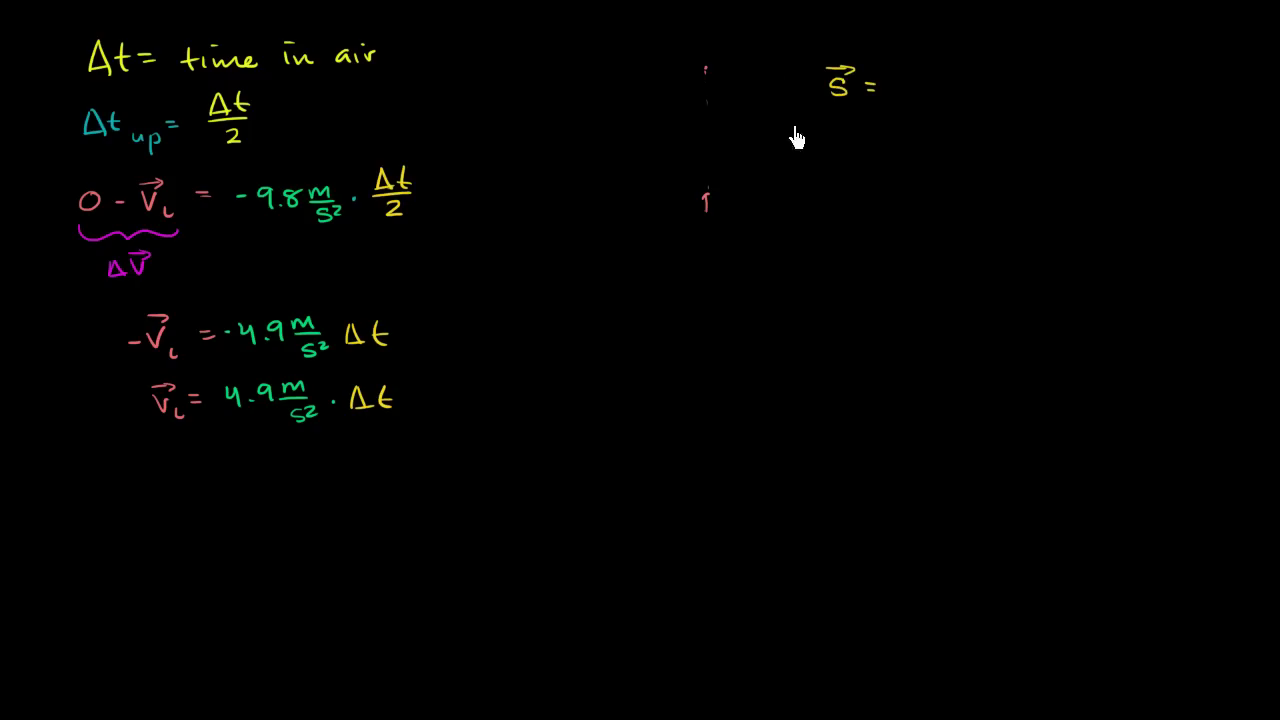 Δt = time in air
Δt up = Δt/2
0 - v⃗ᵢ = -9.8 m/s² · Δt/2
Δv⃗
-v⃗ᵢ = -4.9 m/s² Δt
v⃗ᵢ = 4.9 m/s² · Δt
s⃗ =